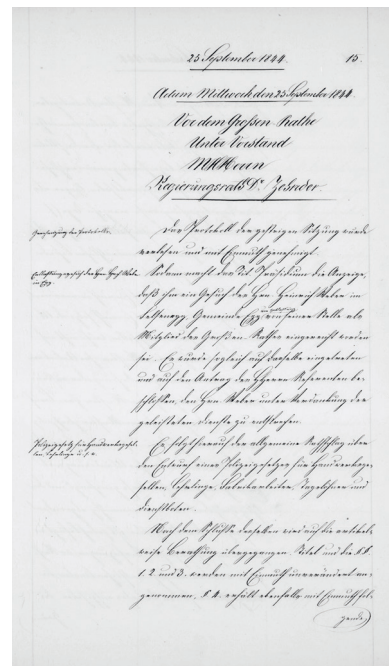 25 September 1844. 15.
Actum Mittwoch den 25 September 1844.
Vor dem Großen Rathe
Unter Vorstand
MHHerrn
Regierungsrath Dr. Zehnder.
Genehmigung des Protokolls.
Das Protokoll der gestrigen Sitzung wurde
verlesen und mit Einmuth genehmigt.
Entlassungsgesuch des Hrn. Heinrich Weber
in Egg.
Sodann macht das Tit. Präsidium die Anzeige,
daß ihm ein Gesuch des Hrn. Heinrich Weber in
Gemeinde Egg, um seiner Stelle als
Mitglied des Großen Rathes eingereicht worden
sei. Es wurde sogleich auf dasselbe eingetreten
und auf den Antrag des Herrn Referenten be-
schlossen, den Hrn. Weber unter Verdankung der
geleisteten Dienste zu entlassen.
Polizeigesetz für Handwerksgesel-
len, Lehrlinge u. s. w.
Es folgt hierauf der allgemeine Rathschlag über
den Entwurf eines Polizeigesetzes für Handwerksge-
sellen, Lehrlinge, Fabrikarbeiter, Tagelöhner und
Dienstboten.
Nach dem Schlusse desselben wird auf die artikel-
weise Berathung übergegangen. Titel und die §.§.
1. 2. und 3. werden mit Einmuth unverändert an-
genommen. §. 4. erhält ebenfalls mit Einmuth fol-
gende